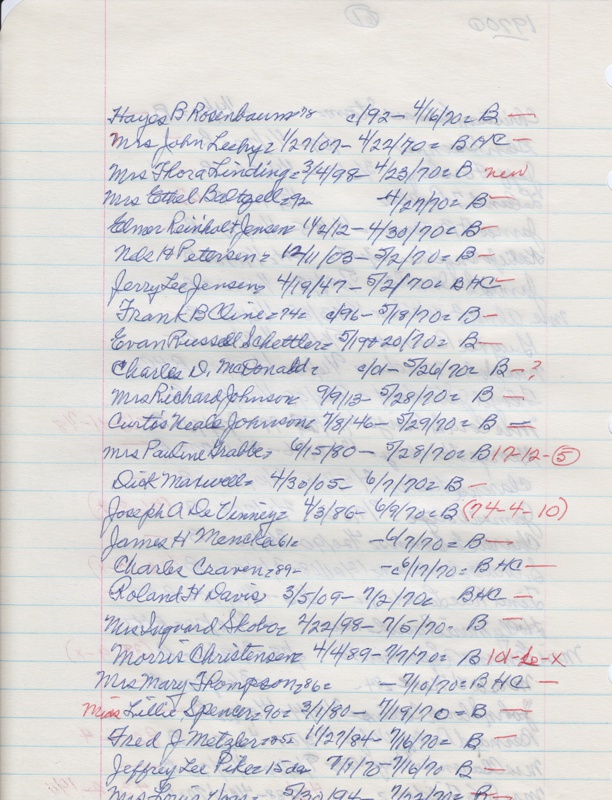 1970a
61
Hayes B Rosenbaum=78 c/92- 4/16/70= B —
Mrs John Leehy= 1/27/07- 4/22/70= BHC —
Mrs Flora Linding= 3/4/98- 4/23/70= B new
Mrs Ethel Baltzell=92 - 4/27/70= B —
Elmer Reinholt Jensen 11/2/12- 4/30/70= B —
Nels H Petersen= 12/11/03- 5/2/70= B —
Jerry Lee Jensen 4/19/47- 5/2/70= BHC —
Frank B Cline=74= c/96- 5/18/70= B —
Evan Russell Schettler= 5/19 20/70= B —
Charles D. McDonald= c/01- 5/26/70= B —?
Mrs Richard Johnson 9/9/13- 5/28/70= B —
Curtis Neale Johnson= 7/8/46- 5/29/70= B —
Mrs Pauline Grabbe= 6/15/80- 5/28/70= B 17-12-5
Dick Maxwell= 4/30/05- 6/7/70= B —
Joseph A DeVinney= 4/3/86- 6/9/70= B (74-4-10)
James H Mencke 61= - 6/7/70= B —
Charles Craven=89- -c 6/17/70= BHC —
Roland H Davis 3/5/09- 7/2/70= BHC —
Mrs Sigvard Skobo= 2/22/98- 7/5/70= B —
Morris Christensen= 4/4/89- 7/7/70= B 101-6-x
Mrs Mary Thompson=86= - 7/10/70= BHC —
Miss Lillie Spencer=90= 3/1/80- 7/19/70= B —
Fred J Metzler=85= 11/27/84- 7/16/70= B —
Jeffrey Lee Pike=15da 7/1/70- 7/16/70 B —
Mrs 5/30/94- 7/22/70= B —